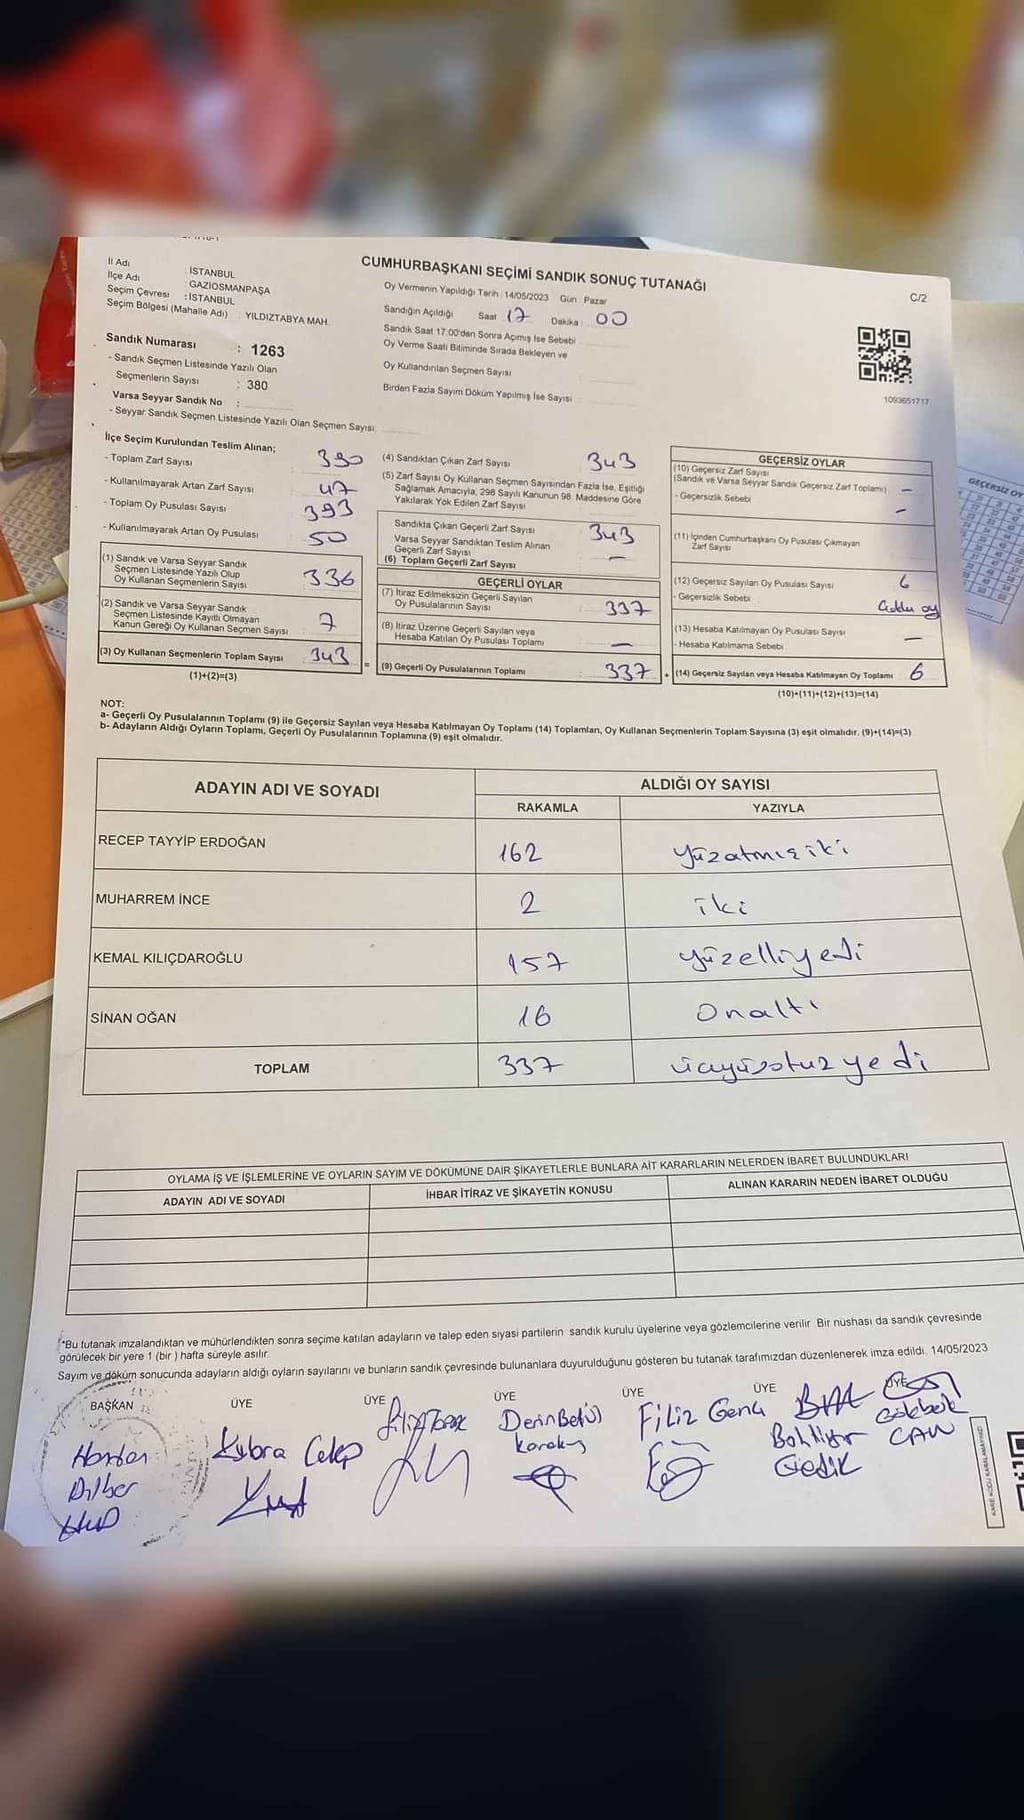 CUMHURBAŞKANI SEÇİMİ SANDIK SONUÇ TUTANAĞI
C/2
İl Adı : İSTANBUL
İlçe Adı : GAZİOSMANPAŞA
Seçim Çevresi : İSTANBUL
Seçim Bölgesi (Mahalle Adı) : YILDIZTABYA MAH.
Sandık Numarası : 1263
- Sandık Seçmen Listesinde Yazılı Olan
Seçmenlerin Sayısı : 380
Varsa Seyyar Sandık No :
- Seyyar Sandık Seçmen Listesinde Yazılı Olan Seçmen Sayısı:
Oy Vermenin Yapıldığı Tarih : 14/05/2023 Gün Pazar
Sandığın Açıldığı Saat 17 Dakika 00
Sandık Saat 17:00'den Sonra Açımış İse Sebebi
Oy Verme Saati Bitiminde Sırada Bekleyen ve
Oy Kullandırılan Seçmen Sayısı
Birden Fazla Sayım Döküm Yapılmış İse Sayısı
1093651717
İlçe Seçim Kurulundan Teslim Alınan;
- Toplam Zarf Sayısı 390
- Kullanılmayarak Artan Zarf Sayısı 47
- Toplam Oy Pusulası Sayısı 393
- Kullanılmayarak Artan Oy Pusulası 50
(1) Sandık ve Varsa Seyyar Sandık
Seçmen Listesinde Yazılı Olup
Oy Kullanan Seçmenlerin Sayısı 336
(2) Sandık ve Varsa Seyyar Sandık
Seçmen Listesinde Kayıtlı Olmayan
Kanun Gereği Oy Kullanan Seçmen Sayısı 7
(3) Oy Kullanan Seçmenlerin Toplam Sayısı 343 =
(1)+(2)=(3)
(4) Sandıktan Çıkan Zarf Sayısı 343
(5) Zarf Sayısı Oy Kullanan Seçmen Sayısından Fazla İse, Eşitliği
Sağlamak Amacıyla, 298 Sayılı Kanunun 98. Maddesine Göre
Yakılarak Yok Edilen Zarf Sayısı
Sandıkta Çıkan Geçerli Zarf Sayısı 343
Varsa Seyyar Sandıktan Teslim Alınan
Geçerli Zarf Sayısı —
(6) Toplam Geçerli Zarf Sayısı
GEÇERLİ OYLAR
(7) İtiraz Edilmeksizin Geçerli Sayılan
Oy Pusulalarının Sayısı 337
(8) İtiraz Üzerine Geçerli Sayılan veya
Hesaba Katılan Oy Pusulası Toplamı —
(9) Geçerli Oy Pusulalarının Toplamı 337 +
GEÇERSİZ OYLAR
(10) Geçersiz Zarf Sayısı
(Sandık ve Varsa Seyyar Sandık Geçersiz Zarf Toplamı) —
- Geçersizlik Sebebi —
(11) İçinden Cumhurbaşkanı Oy Pusulası Çıkmayan
Zarf Sayısı
(12) Geçersiz Sayılan Oy Pusulası Sayısı 6
- Geçersizlik Sebebi oy
(13) Hesaba Katılmayan Oy Pusulası Sayısı —
- Hesaba Katılmama Sebebi
(14) Geçersiz Sayılan veya Hesaba Katılmayan Oy Toplamı 6
(10)+(11)+(12)+(13)=(14)
NOT:
a- Geçerli Oy Pusulalarının Toplamı (9) ile Geçersiz Sayılan veya Hesaba Katılmayan Oy Toplamı (14) Toplamları, Oy Kullanan Seçmenlerin Toplam Sayısına (3) eşit olmalıdır. (9)+(14)=(3)
b- Adayların Aldığı Oyların Toplamı, Geçerli Oy Pusulalarının Toplamına (9) eşit olmalıdır.
ADAYIN ADI VE SOYADI
ALDIĞI OY SAYISI
RAKAMLA YAZIYLA
RECEP TAYYİP ERDOĞAN 162 yüzatmış iki
MUHARREM İNCE 2 iki
KEMAL KILIÇDAROĞLU 157 yüzelliyedi
SİNAN OĞAN 16 Onaltı
TOPLAM 337 üçyüzotuz yedi
OYLAMA İŞ VE İŞLEMLERİNE VE OYLARIN SAYIM VE DÖKÜMÜNE DAİR ŞİKAYETLERLE BUNLARA AİT KARARLARIN NELERDEN İBARET BULUNDUKLARI
ADAYIN ADI VE SOYADI İHBAR İTİRAZ VE ŞİKAYETİN KONUSU ALINAN KARARIN NEDEN İBARET OLDUĞU
*Bu tutanak imzalandıktan ve mühürlendikten sonra seçime katılan adayların ve talep eden siyasi partilerin sandık kurulu üyelerine veya gözlemcilerine verilir. Bir nüshası da sandık çevresinde
görülecek bir yere 1 (bir ) hafta süreyle asılır.
Sayım ve döküm sonucunda adayların aldığı oyların sayılarını ve bunların sandık çevresinde bulunanlara duyurulduğunu gösteren bu tutanak tarafımızdan düzenlenerek imza edildi. 14/05/2023
BAŞKAN ÜYE ÜYE ÜYE ÜYE ÜYE ÜYE
Dilber
Kübra Celep
Derin Betül
Karakuş
Filiz Genç
Bahtiyar
Gedik
Gökberk
CAN
GEÇERSİZ OY